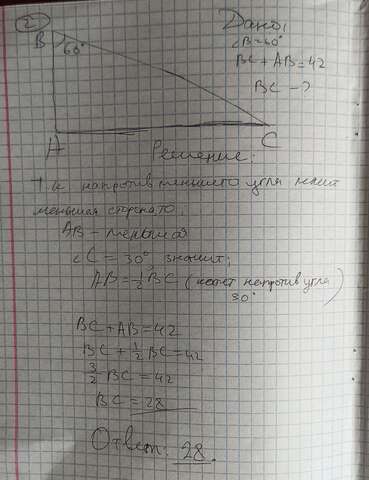 2
Дано:
B
60°
∠B=60°
BC+AB=42
BC - ?
A
C
Решение:
Т.к напротив меньшего угла лежит
меньшая сторона то
AB - меньшая
∠C = 30° значит:
AB=1/2 BC (лежит напротив угла
30°)
BC+AB=42
BC+1/2 BC=42
3/2 BC=42
BC=28
Ответ: 28.